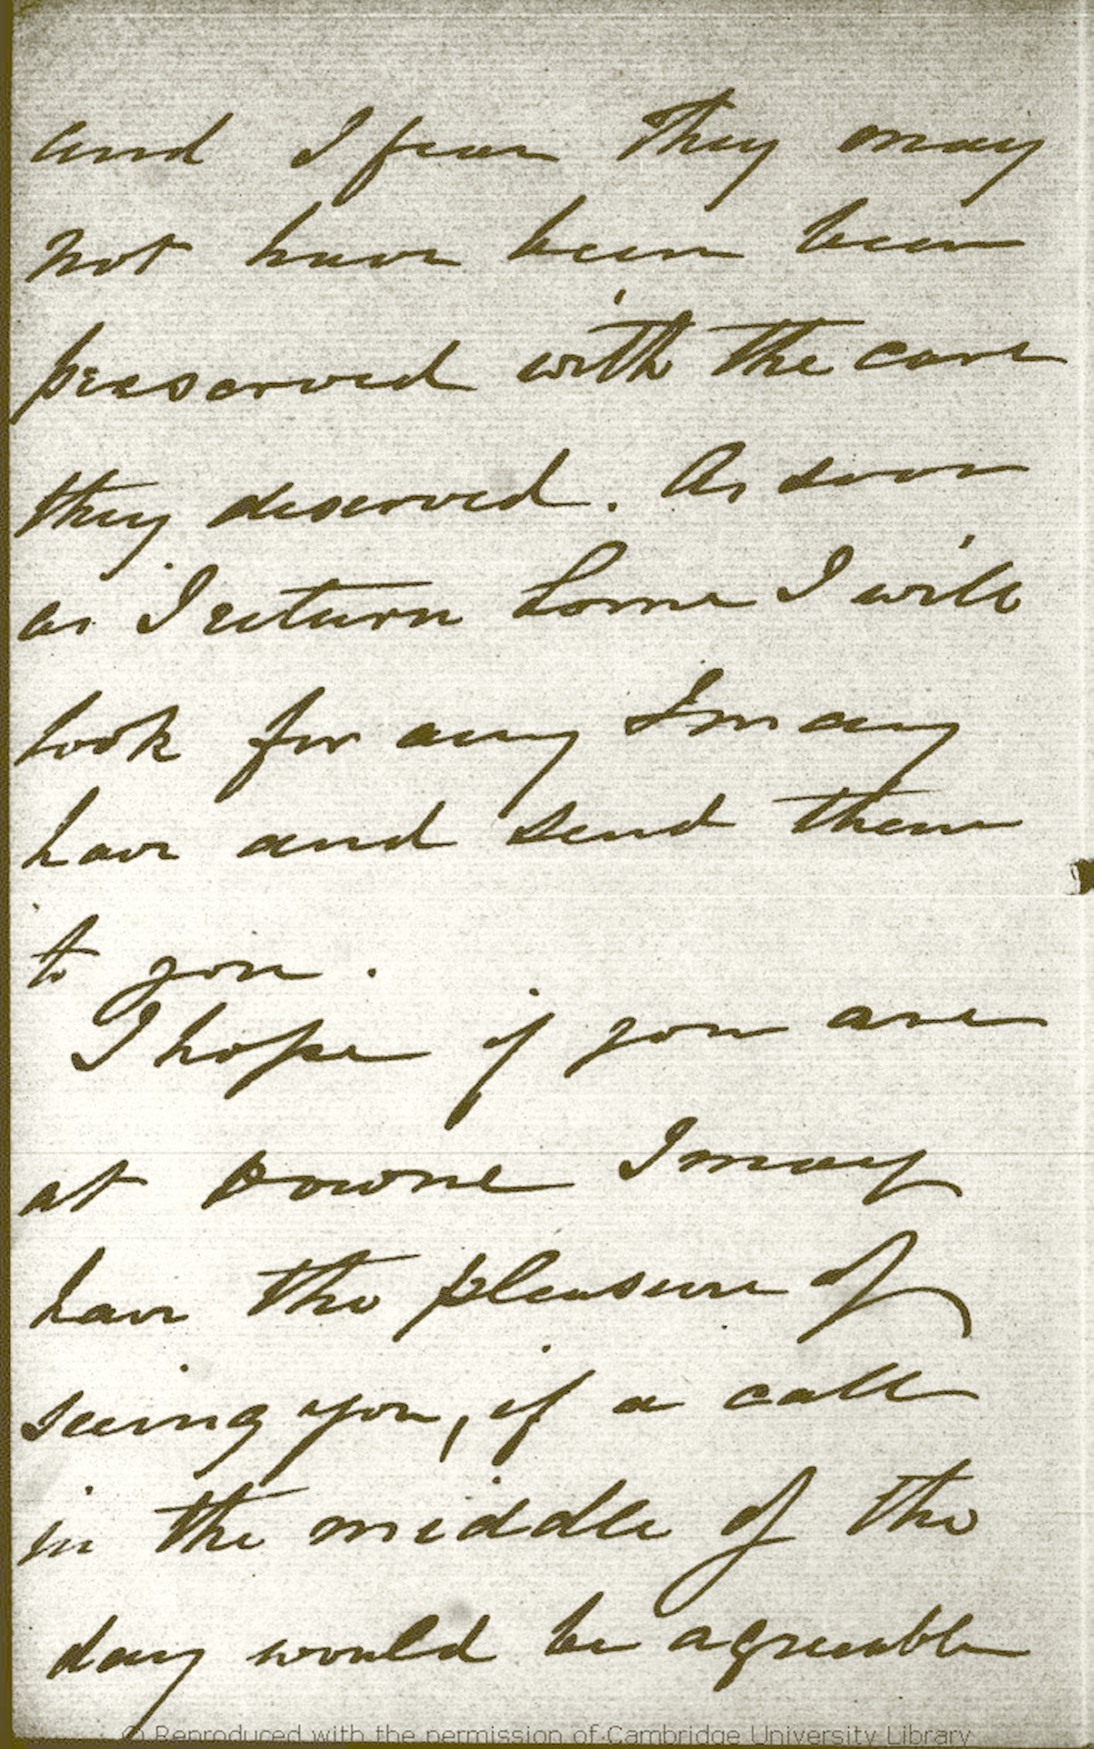 and I fear they may
not have been been
preserved with the care
they deserved. As soon
as I return home I will
look for any I may
have and send them
to you.
I hope if you are
at Downe I may
have the pleasure of
seeing you, if a call
in the middle of the
day would be agreeable
© Reproduced with the permission of Cambridge University Library